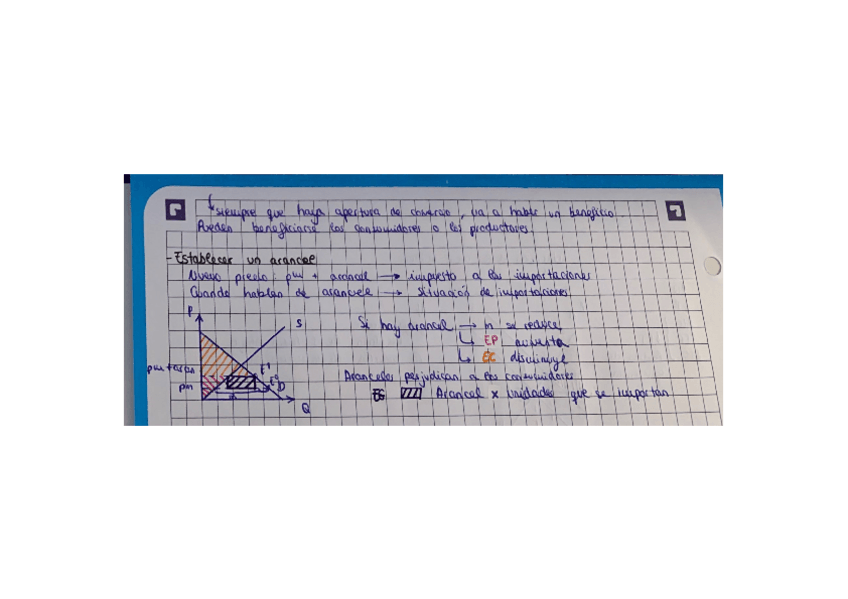 ↳ siempre que haya apertura de comercio, va a haber un beneficio.
Pueden beneficiarse los consumidores o los productores.
- Establecer un arancel
Nuevo precio: pm + arancel → impuesto a las importaciones
Cuando hablan de arancele → situación de importaciones
P
S
Si hay arancel → m se reduce
↳ EP aumenta
↳ EC disminuye
pm + aran
E'
pm
E⁰
D
m
Q
Aranceles perjudican a los consumidores
EG Arancel x unidades que se importan